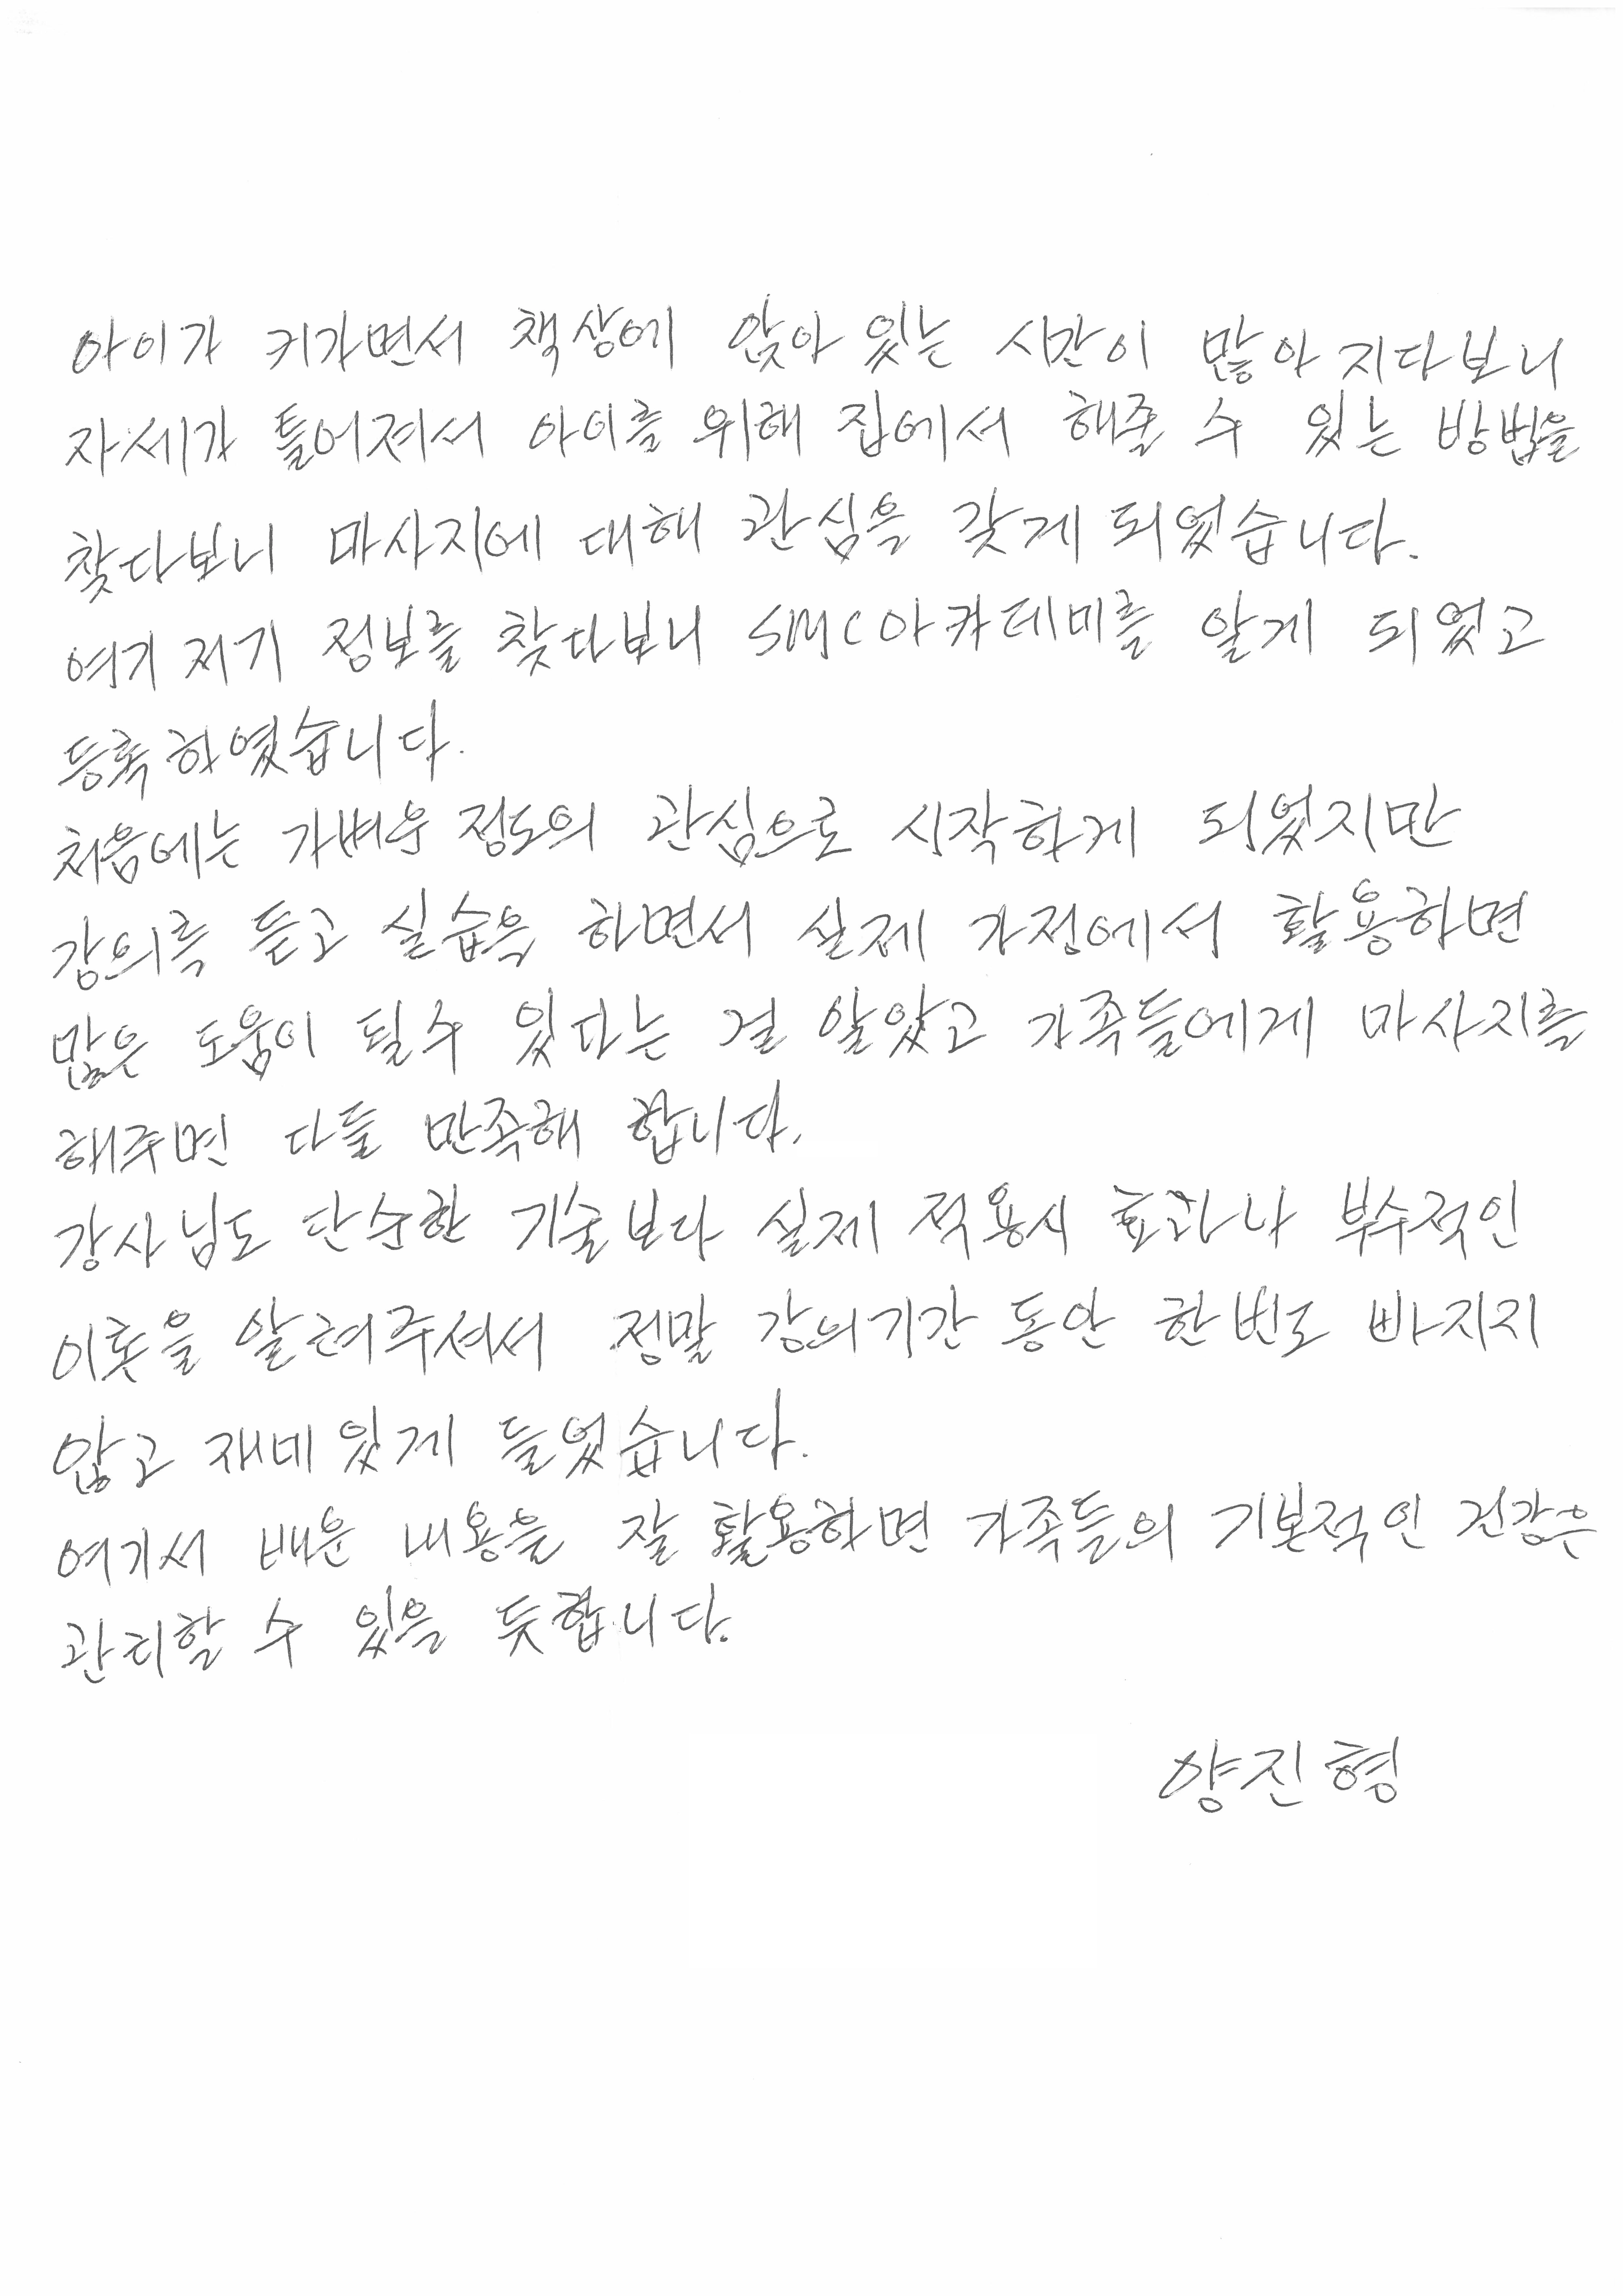 아이가 커가면서 책상에 앉아 있는 시간이 많아 지다보니
자세가 틀어져서 아이를 위해 집에서 해줄 수 있는 방법을
찾다보니 마사지에 대해 관심을 갖게 되었습니다.
여기 저기 정보를 찾다보니 SMC아카데미를 알게 되었고
등록하였습니다.
처음에는 가벼운 정도의 관심으로 시작하게 되었지만
강의를 듣고 실습을 하면서 실제 가정에서 활용하면
많은 도움이 될수 있다는 걸 알았고 가족들에게 마사지를
해주면 다들 만족해 합니다.
강사님도 단순한 기술보다 실제 적용시 효과나 부수적인
이롯을 알려주셔서 정말 강의기간 동안 한번도 빠지지
않고 재미있게 들었습니다.
여기서 배운 내용을 잘 활용하면 가족들의 기본적인 건강은
관리할 수 있을 듯합니다.
양진형